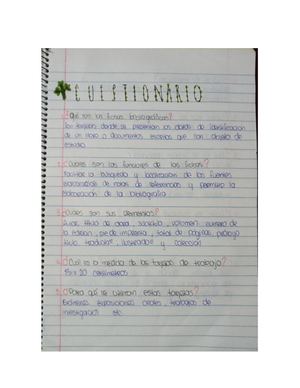 CUESTIONARIO
1.- ¿Qué son las fichas bibliográficas?
Son tarjetas donde se presentan los datos de identificación
de un libro o documentos escritos que son objeto de
estudio
2.- ¿Cuáles son las funciones de las fichas?
Facilitar la búsqueda y localización de las fuentes
de referencias y permitir la
elaboración de la bibliografía
3.- ¿Cuáles son sus elementos?
Autor, título de obra, subtítulo, volumen, número de
la edición, pie de imprenta, total de páginas, prólogo
título, traductor, ilustrador y colección
4.- ¿Cuál es la medida de las tarjetas de trabajo?
20 centímetros
5.- ¿Para qué se utilizan estas tarjetas?
Exámenes, exposiciones orales, trabajos de
investigación etc